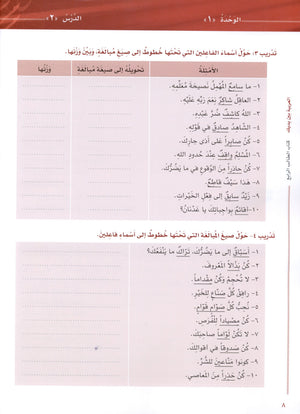 الوَحْدَةُ «١» الدَّرْسُ «٢»
تدريب ٣: حَوِّلْ أسماءَ الفاعِلِينَ التي تَحْتَها خُطوطٌ إلى صِيَغِ مُبالَغَةٍ، وبَيِّنْ وَزْنَها.
الأَمْثِلَةُ تَحْويلُهُ إلى صيغَةِ مُبالَغَةٍ وَزْنُها
١- ما سامِعٌ المُهْمِلُ نَصيحَةَ مُعَلِّمِهِ.
٢- العاقِلُ شاكِرٌ نِعَمَ رَبِّهِ عَلَيْهِ.
٣- اللهُ كاشِفٌ ضُرَّ عَبْدِهِ.
٤- الشّاهِدُ صادِقٌ في قَوْلِهِ.
٥- كُنْ صابِراً على أذى جارِكَ.
٦- المُسْلِمُ واقِفٌ عِنْدَ حُدودِ اللهِ.
٧- كُنْ حاذِراً مِنَ الوُقوعِ في ما يَضُرُّكَ.
٨- هذا سَيْفٌ قاطِعٌ.
٩- زَيْدٌ سابِقٌ إلى فِعْلِ الخَيْراتِ.
١٠- أقائِمٌ بِواجِباتِكَ يا عَدْنانُ؟
تدريب ٤: حَوِّلْ صِيَغَ المُبالَغَةِ التي تَحْتَها خُطوطٌ إلى أسماءِ فاعِلِينَ.
١- أَسَبّاقٌ إلى ما يَضُرُّكَ، تَرّاكٌ ما يَنْفَعُكَ؟
٢- كُنْ بَذّالاً المَعْروفَ.
٣- لا تُحْجِمْ وكُنْ مِقْداماً.
٤- رافِقْ كُلَّ سَبّاقٍ لِلْخَيْرِ.
٥- نُحِبُّ كُلَّ صَوّامٍ قَوّامٍ.
٦- كُنْ مِصْيَداً لِلْفُرَصِ.
٧- لا تَكُنْ لَوّاماً صاحِبَكَ.
٨- كُنْ صَدوقاً في أقوالِكَ.
٩- كونوا مَنّاعينَ لِلشَّرِّ.
١٠- كُنْ حَذِراً مِنَ المَعاصي.
العربية بين يديك
كتاب الطالب الرابع
٨